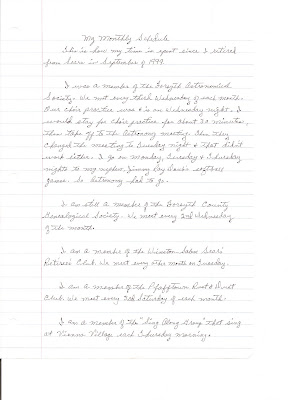 My Monthly Schedule
This is how my time is spent since I retired
from Sears in September of 1999.
I was a member of the Forsyth Astronomical
Society. We met every third Wednesday of each month.
Our choir practice was # is on Wednesday night. I
would stay for choir practice for about 30 minutes,
then take off to the Astronomy meeting. Then they
changed the meeting to Tuesday night & that didn't
work either. I go on Monday, Tuesday & Thursday
nights to my nephew, Jimmy Ray Davis's softball
games. So Astronomy had to go.
I am still a member of the Forsyth County
Genealogical Society. We meet every 2nd Wednesday
of the month.
I am a member of the Winston-Salem Sears
Retirees Club. We meet every other month on Tuesday.
I am a member of the Pfafftown Rust & Dust
Club. We meet every 3rd Saturday of each month.
I am a member of the "Sing Along Group" that sing
at Vienna Village each Thursday morning.